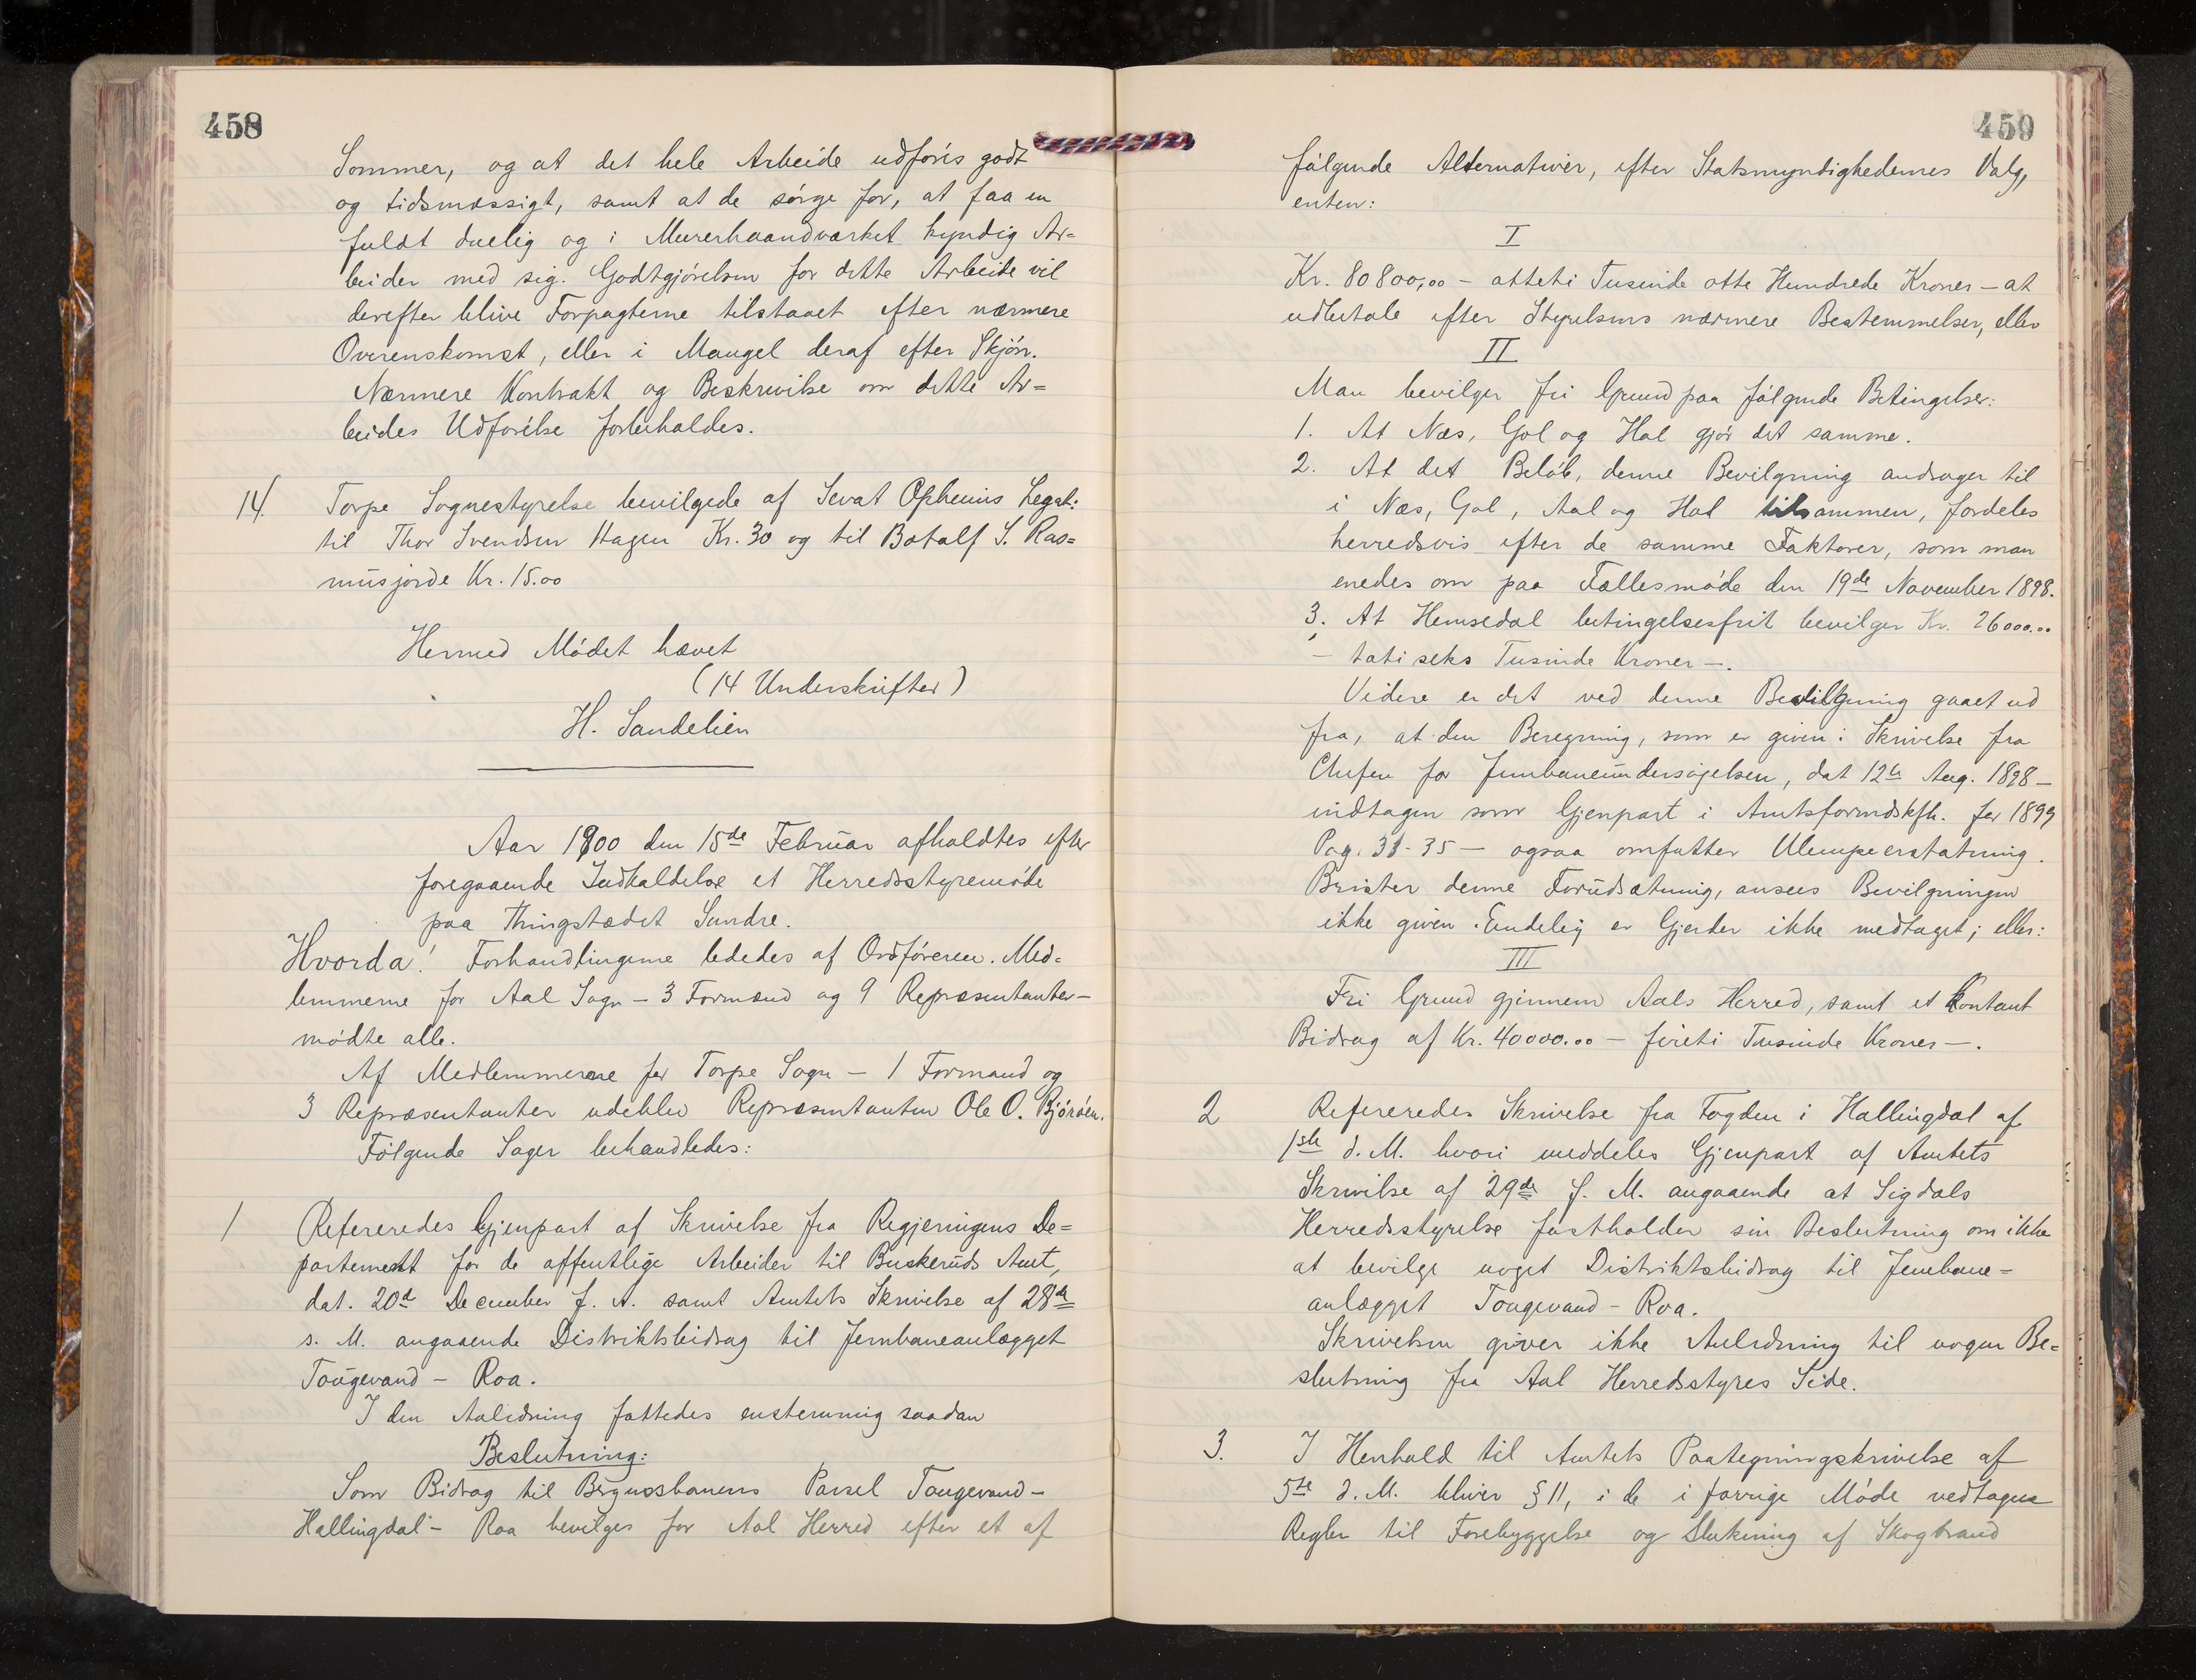 458
Sommer, og at det hele Arbeide udføris godt
og tidsmæssigt, samt at de sørge for, at faa en
fuldt duelig og i Murerhaandværket kyndig Ar=
beider med sig. Godtgjørelsen for dette Arbeide vil
derefter blive Forpagterne tilstaaet efter nærmere
Overenskomst, eller i Mangel deraf efter Skjøn.
Nærmere Kontrakt og Beskrivelse om dette Ar=
beides Udførelse forbeholdes.
14. Torpe Sognestyrelse bevilgede af Sevat Opheims Legat:
til Thor Svendsen Hagen Kr. 30 og til Botolf S. Ras=
musjorde Kr. 15.00
Hermed Mødet hævet
(14 Underskrifter)
H. Sandelien
Aar 1900 den 15de Februar afholdtes efter
foregaaende Indkaldelse et Herredsstyremøde
paa Thingstædet Sundre.
Hvorda! Forhandlingerne lededes af Ordføreren. Med=
lemmerne for Aal Sogn - 3 Formænd og 9 Repræsentanter -
mødte alle.
Af Medlemmerne for Torpe Sogn - 1 Formand og
3 Repræsentanter udeblev Repræsentanten Ole O. Bjørøen.
Følgende Sager behandledes:
1 Refereredes Gjenpart af Skrivelse fra Regjeringens De=
partement for de offentlige Arbeider til Buskeruds Amt,
dat. 20de December f. A. samt Amtets Skrivelse af 28de
s. M. angaaende Distriktsbidrag til Jernbaneanlægget
Tougevand - Roa.
I den Anledning fattedes enstemmig saadan
Beslutning:
Som Bidrag til Bergensbanens Parsel Tougevand -
Hallingdal - Roa bevilges for Aal Herred efter et af
459
følgende Alternativer, efter Statsmyndighedernes Valg,
enten:
I
Kr. 80800,00 - otteti Tusinde otte Hundrede Kroner - at
udbetale efter Styrelsens nærmere Bestemmelser, eller
II
Man bevilger fri Grund paa følgende Betingelser:
1. At Næs, Gol og Hol gjør det samme.
2. At det Beløb, denne Bevilgning andrager til
i Næs, Gol, Aal og Hol tilsammen, fordeles
herredsvis efter de samme Faktorer, som man
enedes om paa Fællesmøde den 19de November 1898.
3. At Hemsedal betingelsesfrit bevilger Kr. 26000.00
- toti seks Tusinde Kroner -.
Videre er det ved denne Bevilgning gaaet ud
fra, at den Beregning, som er given i Skrivelse fra
Chefen for Jernbaneundersøgelsen, dat 12te Aug. 1898 -
indtagen som Gjenpart i Amtsformdskfh. for 1899
Pag. 31-35 - ogsaa omfatter Ulempeerstatning.
Brister denne Forudsætning, ansees Bevilgningen
ikke given. Endelig er Gjerder ikke medtaget; eller:
III
Fri Grund gjennem Aals Herred, samt et kontant
Bidrag af Kr. 40000.00 - fireti Tusinde Kroner -.
2 Refereredes Skrivelse fra Fogden i Hallingdal af
1ste d. M. hvori meddeles Gjenpart af Amtets
Skrivelse af 29de f. M. angaaende at Sigdals
Herredsstyrelse fastholder sin Beslutning om ikke
at bevilge noget Distriktsbidrag til Jernbane=
anlægget Tougevand - Roa.
Skrivelsen giver ikke Anledning til nogen Be=
slutning fra Aal Herredsstyres Side.
3. I Henhold til Amtets Paategningskrivelse af
5te d. M. bliver § 11, i de i forrige Møde vedtagne
Regler til Forebyggelse og Slukning af Skogbrand